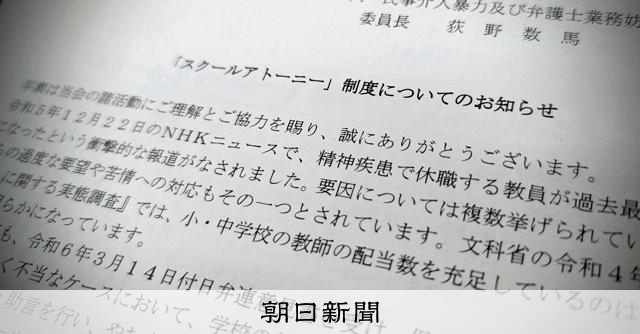 民事介入暴力及び弁護士業務妨
委員長 荻野数馬
「スクールアトーニー」制度についてのお知らせ
平素は当会の諸活動にご理解とご協力を賜り、誠にありがとうございます。
令和5年12月22日のNHKニュースで、精神疾患で休職する教員が過去最
になったという衝撃的な報道がなされました。要因については複数挙げられてい
らの過度な要望や苦情への対応もその一つとされています。文科省の令和4年
に関する実態調査』では、小・中学校の教師の配当数を充足しているのは
らかになっています。
も、令和6年3月14日付日弁連意
く不当なケースにおいて、学校の
助言を行い、やむ
朝日新聞